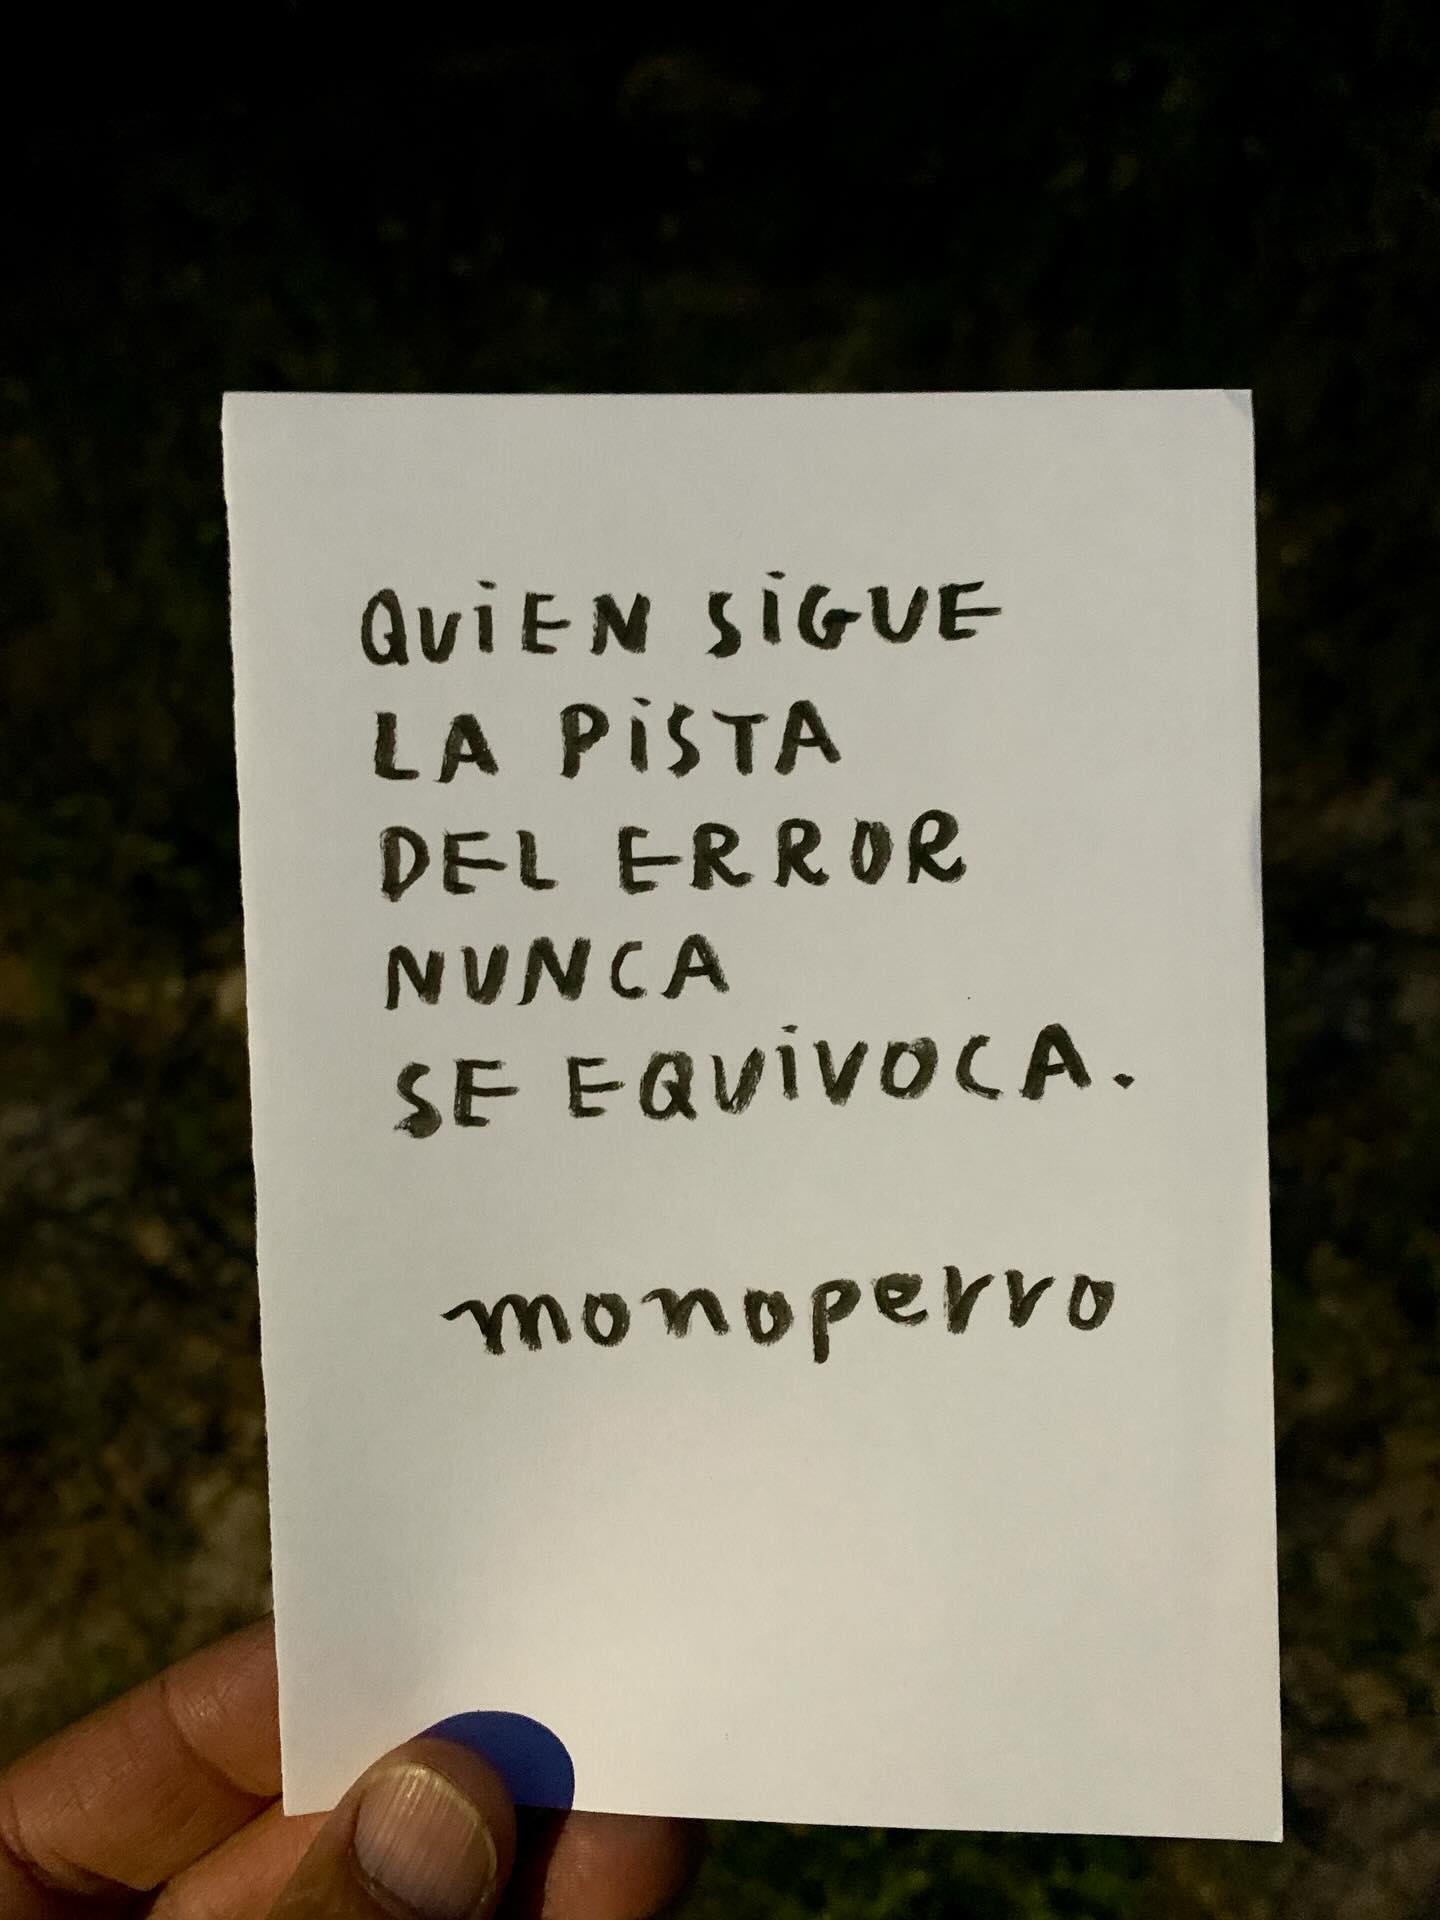 QUiEN SiGUE
LA PiSTA
DEL ERROR
NUNCA
SE EQUiVOCA.
monoperro